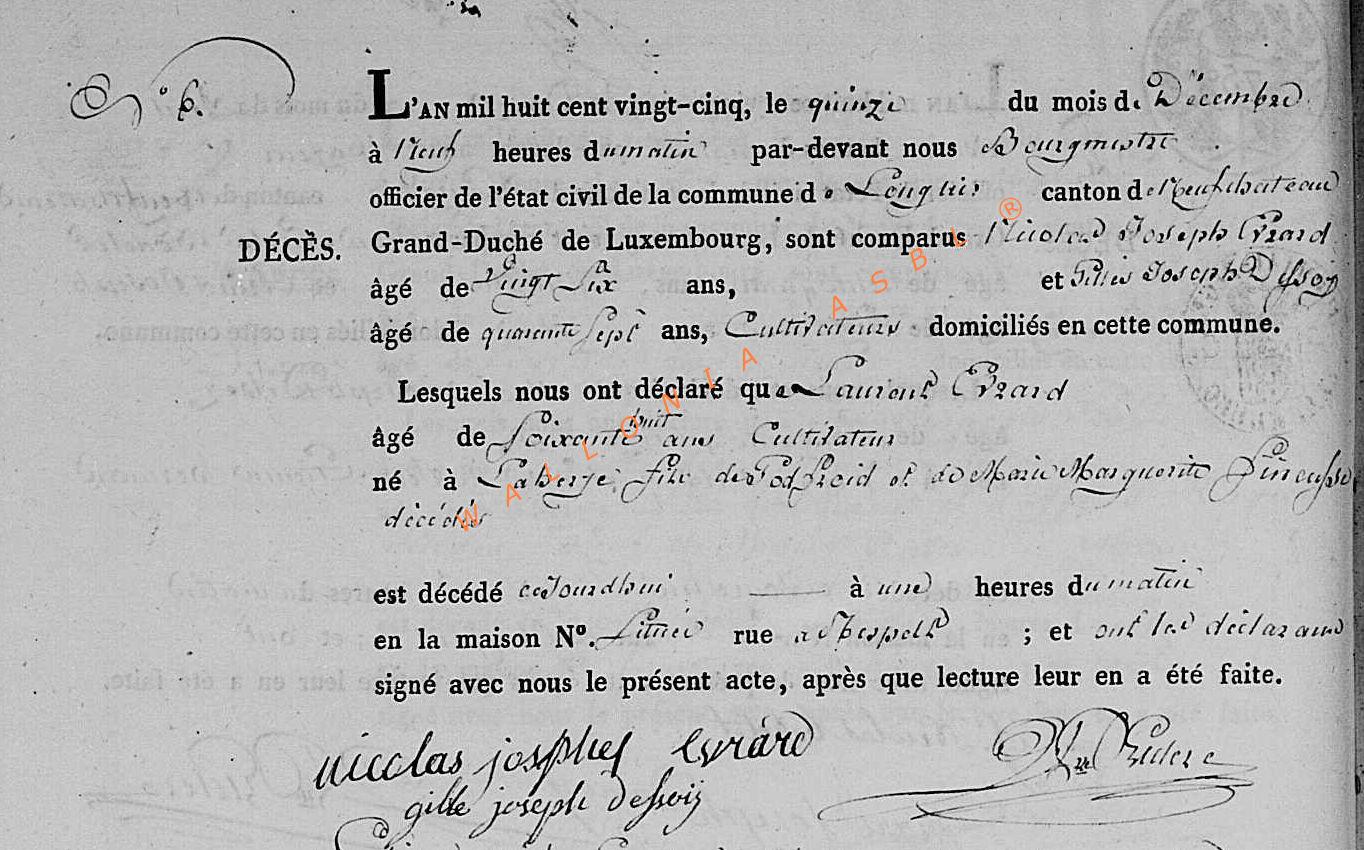 N° 6.
L'AN mil huit cent vingt-cinq, le quinze du mois de Décembre
à Neuf heures du matin par-devant nous Bourgmestre
officier de l'état civil de la commune de Longlier canton de Neufchateau
DÉCÈS. Grand-Duché de Luxembourg, sont comparus Nicolas Joseph Evrard
âgé de Vingt Six ans, et Gilles Joseph Dessoy
âgé de quarante Sept ans, Cultivateurs domiciliés en cette commune.
Lesquels nous ont déclaré que Laurent Evrard
âgé de Soixante huit ans Cultivateur
né à Laherie fils de Godfroid et de Marie Marguerite
décédés
est décédé cejourdhui à une heures du matin
en la maison N°. Située rue a Respelt ; et ont les déclarans
signé avec nous le présent acte, après que lecture leur en a été faite.
nicolas joseph evrard
gille joseph dessoij
WALLONIA ASBL ®